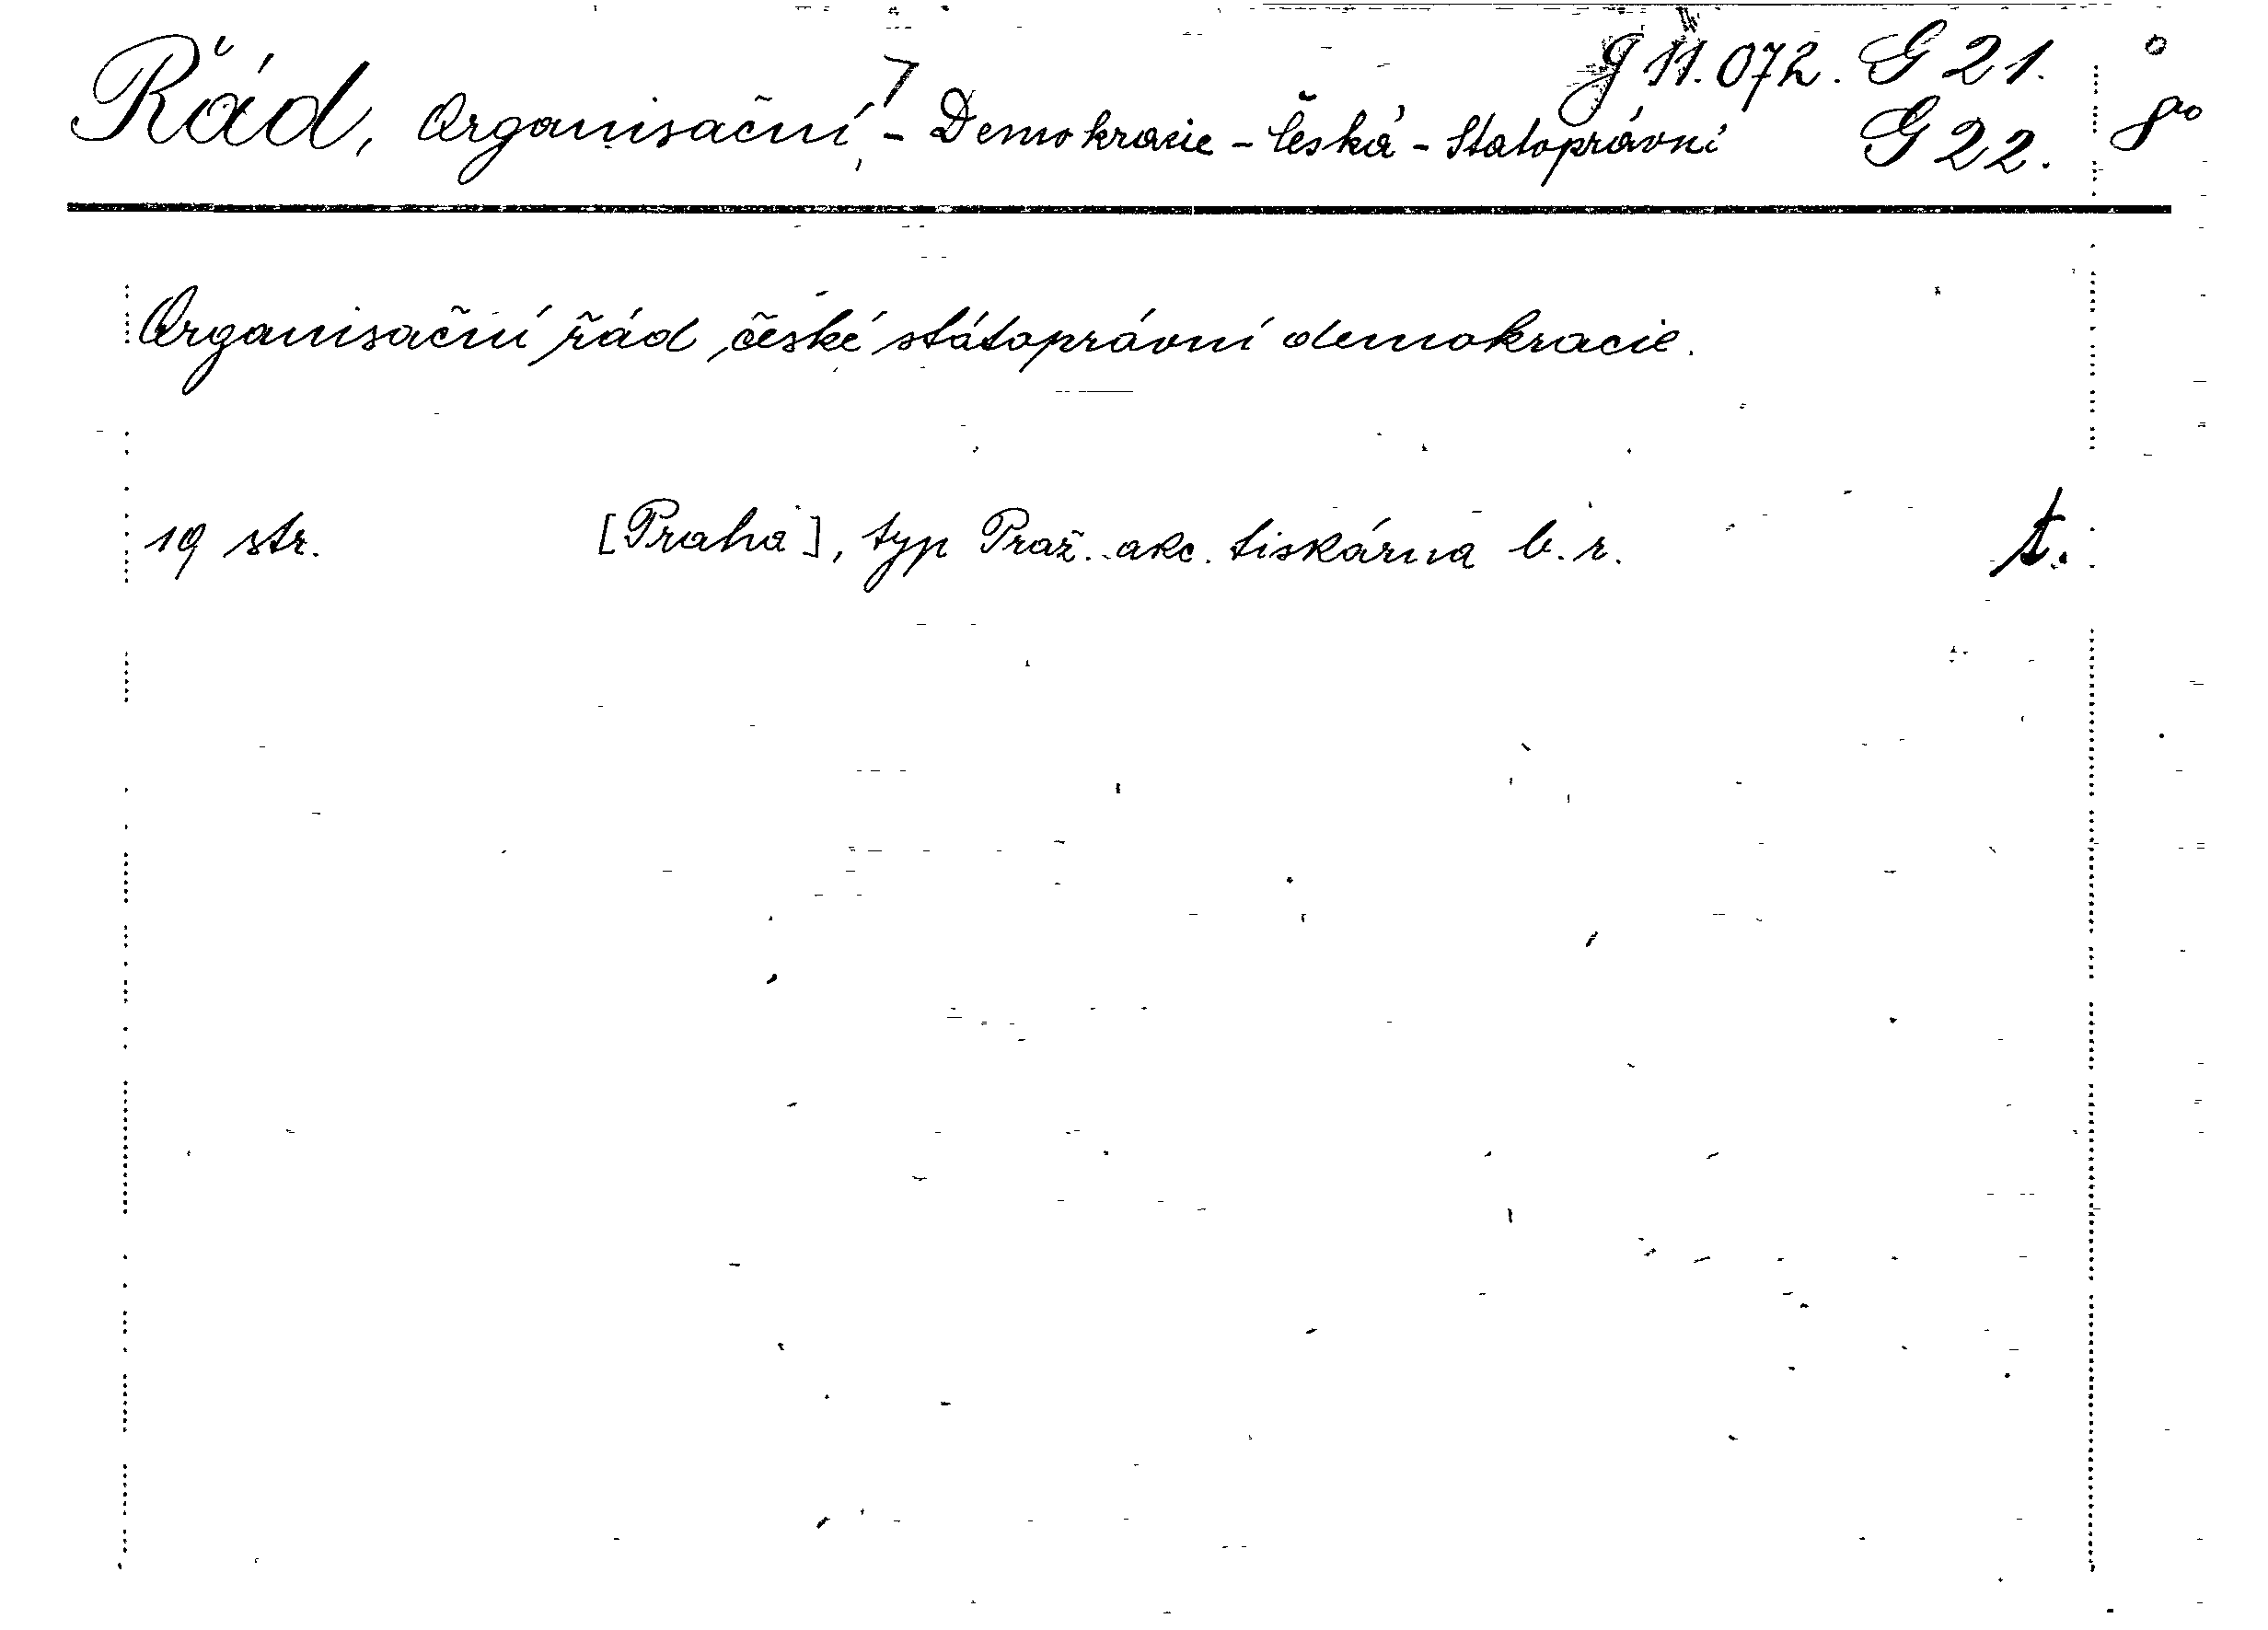 g 11.072. G 21.
Řád, Organisační, - Demokracie - česká - Statoprávní G 22. 8°
Organisační řád české státoprávní demokracie.
19 str. [Praha], typ Praž. akc. tiskárna b. r. t.